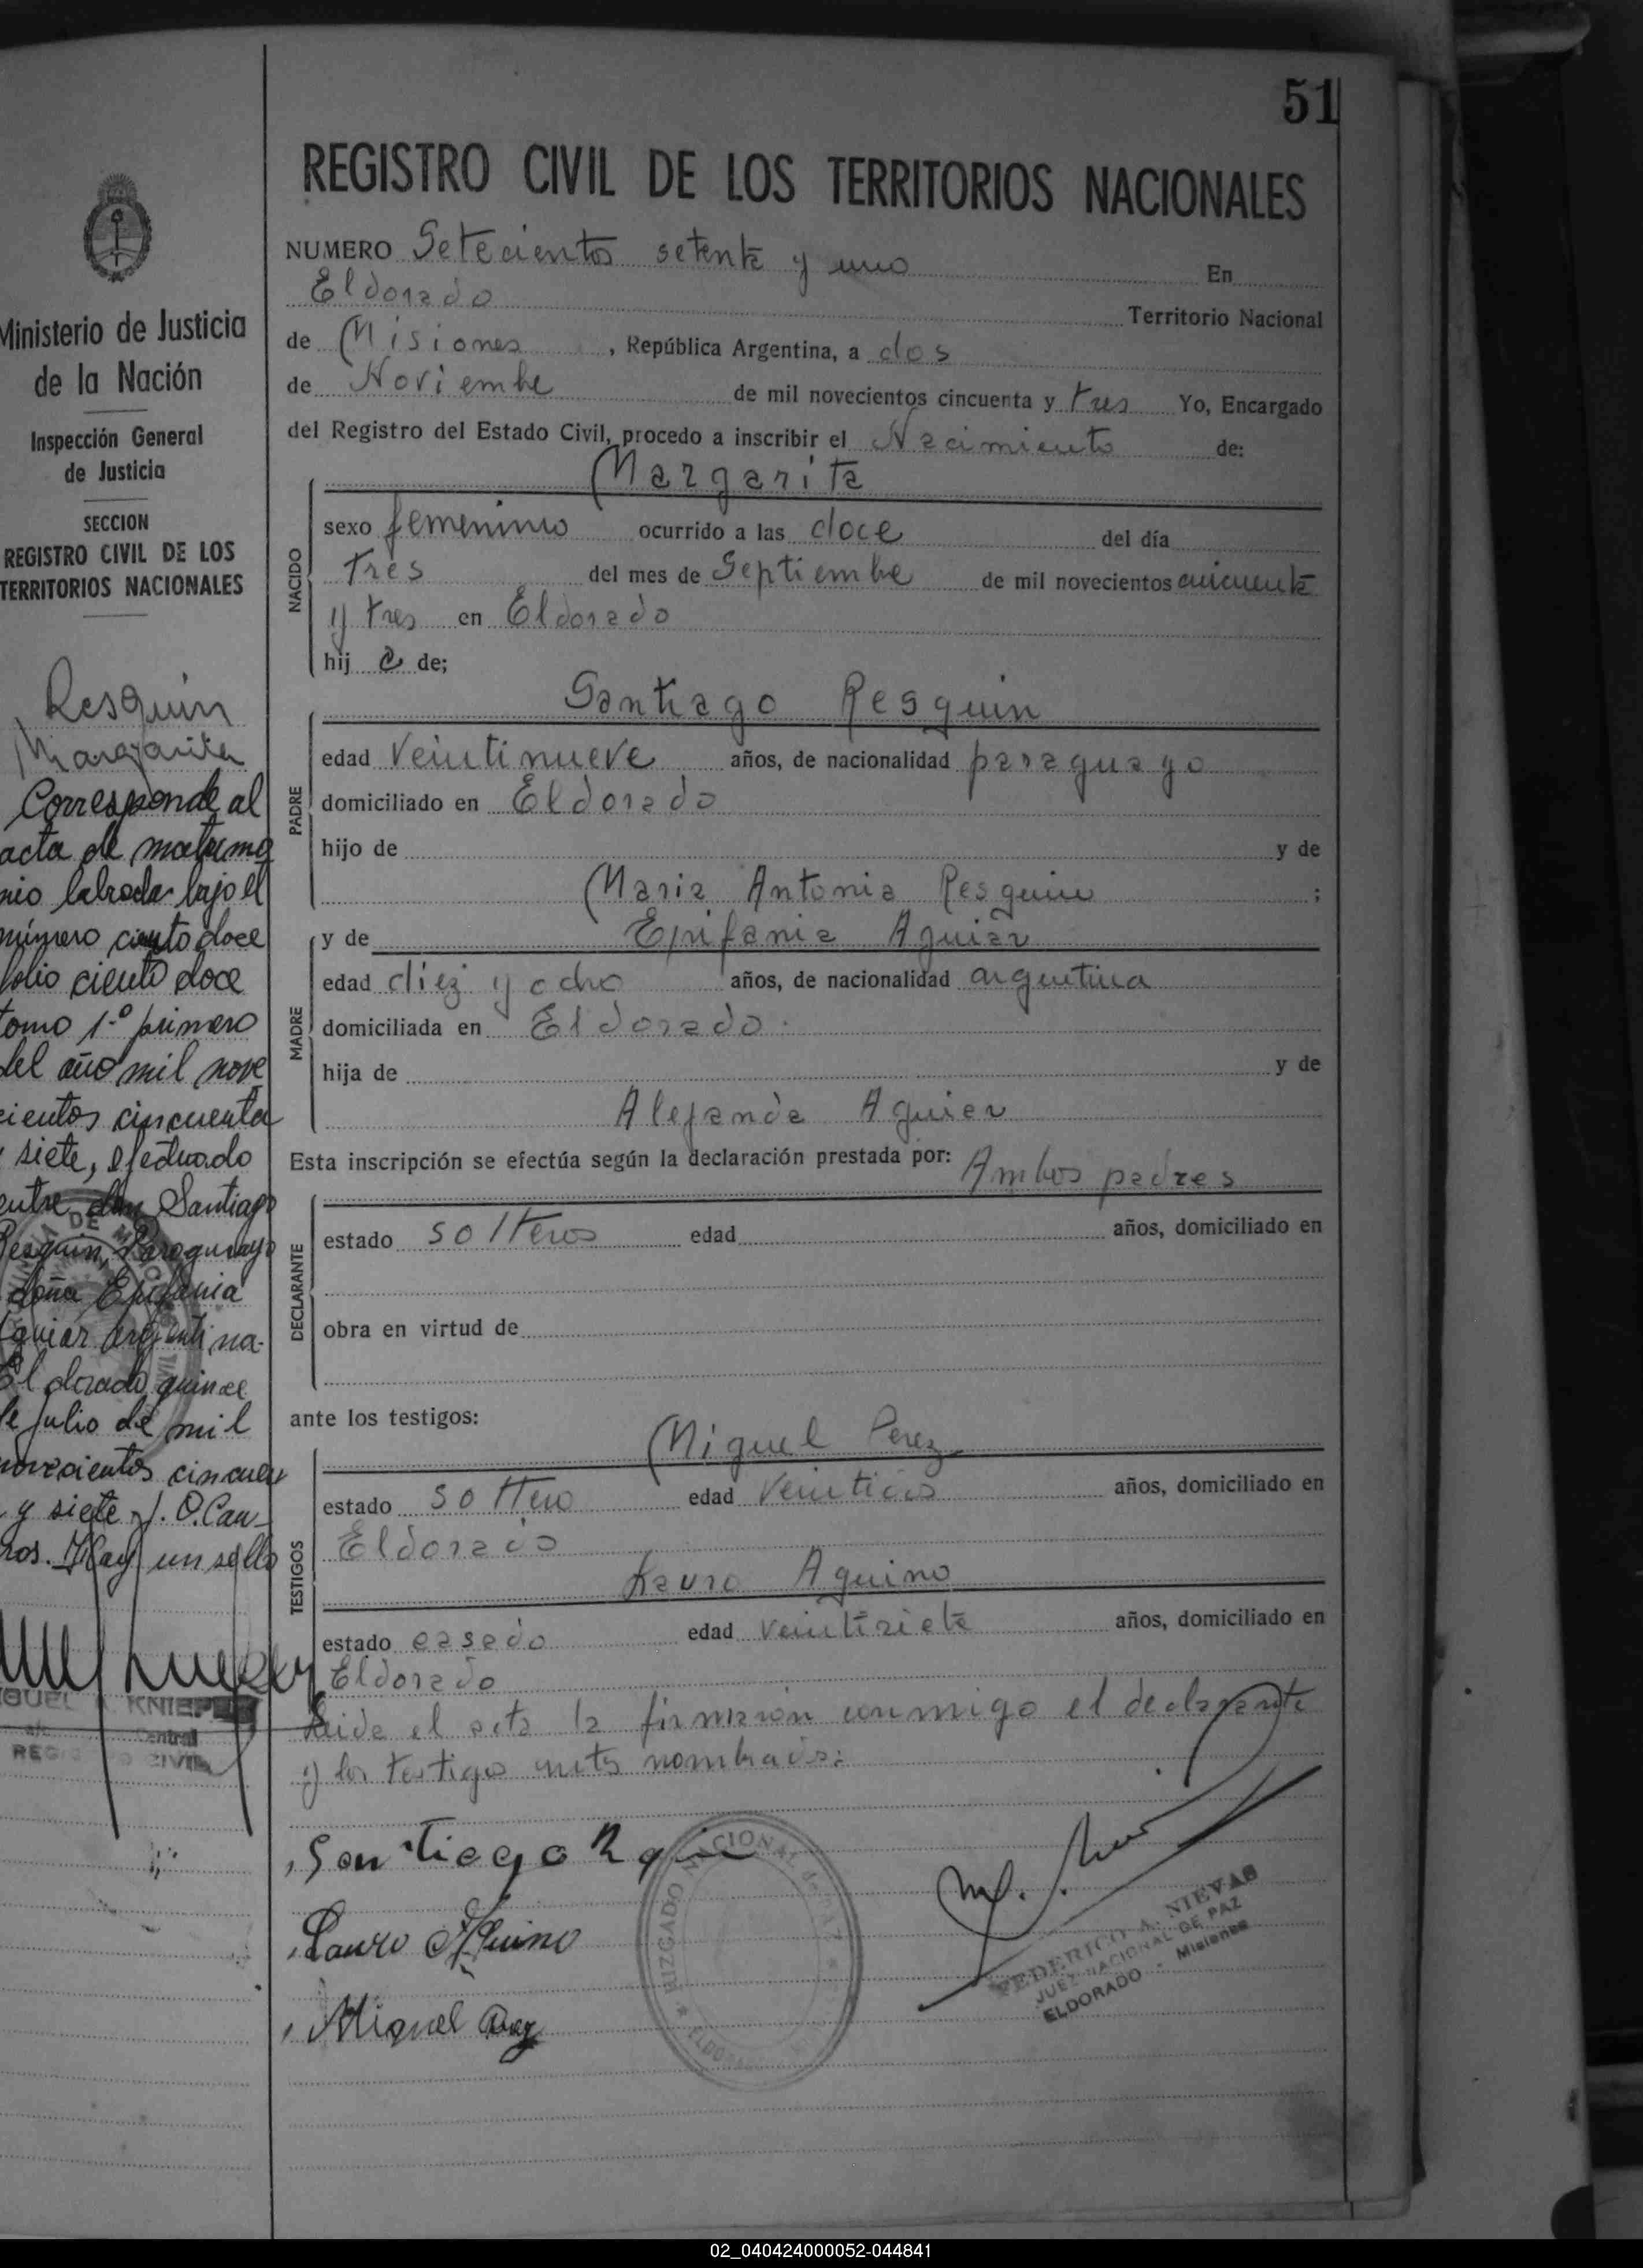 51
REGISTRO CIVIL DE LOS TERRITORIOS NACIONALES
NUMERO Setecientos setenta y uno En
Eldorado
Territorio Nacional
de Misiones, República Argentina, a dos
de Noviembre de mil novecientos cincuenta y tres Yo, Encargado
del Registro del Estado Civil, procedo a inscribir el Nacimiento de:
Margarita
NACIDO
sexo femenino ocurrido a las doce del día
tres del mes de Septiembre de mil novecientos cincuenta
y tres en Eldorado
hij a de;
Santiago Resquin
PADRE
edad veintinueve años, de nacionalidad paraguayo
domiciliado en Eldorado
hijo de y de
Maria Antonia Resquin ;
y de Epifania Aguiar
MADRE
edad diez y ocho años, de nacionalidad argentina
domiciliada en Eldorado.
hija de y de
Alejanda Aguier
Esta inscripción se efectúa según la declaración prestada por: Ambos padres
DECLARANTE
estado solteros edad años, domiciliado en
obra en virtud de
ante los testigos:
Miguel Perez
TESTIGOS
estado soltero edad años, domiciliado en
Eldorado
Lauro Aquino
estado casado edad veintisiete años, domiciliado en
Eldorado
Leida el acta la firmaron conmigo el declarante
y los testigos nombrados:
Santiago
Lauro Aquino
Miguel
JUZGADO NACIONAL de PAZ
ELDORADO
FEDERICO A. NIEVAS
JUEZ NACIONAL DE PAZ
ELDORADO - Misiones
Ministerio de Justicia
de la Nación
Inspección General
de Justicia
SECCION
REGISTRO CIVIL DE LOS
TERRITORIOS NACIONALES
Resquin
Margarita
Corresponde al
acta de matrimo
nio labrada bajo el
número ciento doce
folio ciento doce
tomo 1º primero
del año mil nove
cientos cincuenta
y siete, efectuado
entre don Santiago
Resquin, Paraguayo
doña Epifania
Aguiar argentina.
El dorado quince
de Julio de mil
novecientos cincuen
y siete J. O. Can
ros. Hay un sello
MIGUEL KNIEPER
Central
REGISTRO CIVIL
02_040424000052-044841